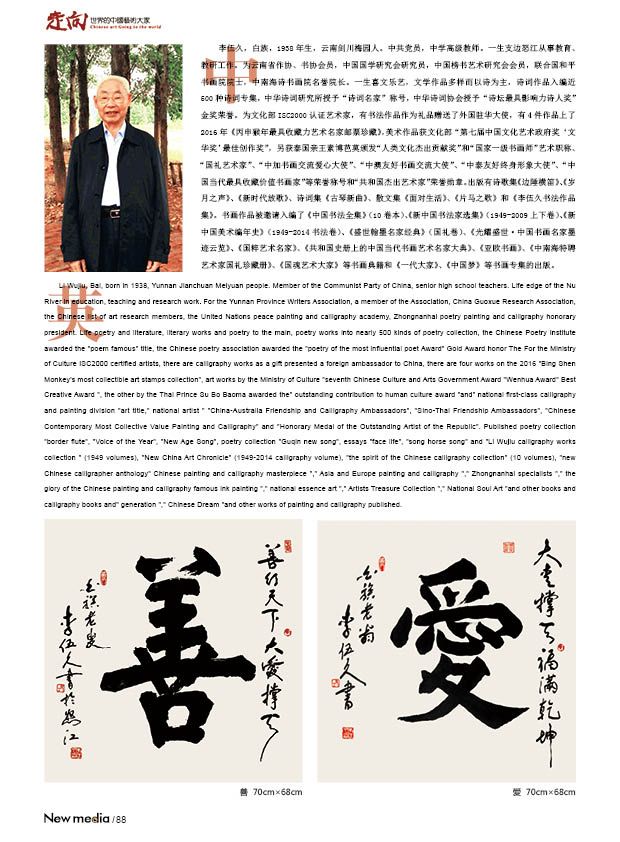 走向世界的中國藝術大家
Chinese art Going to the world
李伍久，白族，1938 年生，云南剑川梅园人。中共党员，中学高级教师。一生支边怒江从事教育、
教研工作。为云南省作协、书协会员，中国国学研究会研究员，中国榜书艺术研究会会员，联合国和平
书画院院士，中南海诗书画院名誉院长。一生喜文乐艺，文学作品多样而以诗为主，诗词作品入编近
500 种诗词专集，中华诗词研究所授予“诗词名家”称号，中华诗词协会授予“诗坛最具影响力诗人奖”
金奖荣誉。为文化部 ISC2000 认证艺术家，有书法作品作为礼品赠送了外国驻华大使，有 4 件作品上了
2016 年《丙申猴年最具收藏力艺术名家邮票珍藏》，美术作品获文化部“第七届中国文化艺术政府奖‘文
华奖’最佳创作奖”，另获泰国亲王素博芭莫颁发“人类文化杰出贡献奖”和“国家一级书画师”艺术职称、
“国礼艺术家”、“中加书画交流爱心大使”、“中澳友好书画交流大使”、“中泰友好终身形象大使”、“中
国当代最具收藏价值书画家”等荣誉称号和“共和国杰出艺术家”荣誉勋章。出版有诗歌集《边陲横笛》、《岁
月之声》、《新时代放歌》、诗词集《古琴新曲》、散文集《面对生活》、《片马之歌》和《李伍久书法作品
集》。书画作品被邀请入编了《中国书法全集》（10 卷本）、《新中国书法家选集》（1949-2009 上下卷）、《新
中国美术编年史》（1949-2014 书法卷）、《盛世翰墨名家经典》（国礼卷）、《光耀盛世·中国书画名家墨
迹云览》、《国粹艺术名家》、《共和国史册上的中国当代书画艺术名家大典》、《亚欧书画》、《中南海特聘
艺术家国礼珍藏册》、《国魂艺术大家》等书画典籍和《一代大家》、《中国梦》等书画专集的出版。
中
英
Li Wujiu, Bai, born in 1938, Yunnan Jianchuan Meiyuan people. Member of the Communist Party of China, senior high school teachers. Life edge of the Nu
River in education, teaching and research work. For the Yunnan Province Writers Association, a member of the Association, China Guoxue Research Association,
the Chinese list of art research members, the United Nations peace painting and calligraphy academy, Zhongnanhai poetry painting and calligraphy honorary
president. Life poetry and literature, literary works and poetry to the main, poetry works into nearly 500 kinds of poetry collection, the Chinese Poetry Institute
awarded the "poem famous" title, the Chinese poetry association awarded the "poetry of the most influential poet Award" Gold Award honor The For the Ministry
of Culture ISC2000 certified artists, there are calligraphy works as a gift presented a foreign ambassador to China, there are four works on the 2016 "Bing Shen
Monkey's most collectible art stamps collection", art works by the Ministry of Culture "seventh Chinese Culture and Arts Government Award "Wenhua Award" Best
Creative Award ", the other by the Thai Prince Su Bo Baoma awarded the" outstanding contribution to human culture award "and" national first-class calligraphy
and painting division "art title," national artist " "China-Australia Friendship and Calligraphy Ambassadors", "Sino-Thai Friendship Ambassadors", "Chinese
Contemporary Most Collective Value Painting and Calligraphy" and "Honorary Medal of the Outstanding Artist of the Republic". Published poetry collection
"border flute", "Voice of the Year", "New Age Song", poetry collection "Guqin new song", essays "face life", "song horse song" and "Li Wujiu calligraphy works
collection " (1949 volumes), "New China Art Chronicle" (1949-2014 calligraphy volume), "the spirit of the Chinese calligraphy collection" (10 volumes), "new
Chinese calligrapher anthology" Chinese painting and calligraphy masterpiece "," Asia and Europe painting and calligraphy "," Zhongnanhai specialists "," the
glory of the Chinese painting and calligraphy famous ink painting "," national essence art "," Artists Treasure Collection "," National Soul Art "and other books and
calligraphy books and" generation "," Chinese Dream "and other works of painting and calligraphy published.
善行天下大愛撐天
善
白族老叟
李伍久書於怒江
大愛撐天福滿乾坤
愛
白族老翁
李伍久書
善 70cm×68cm
愛 70cm×68cm
New media /88